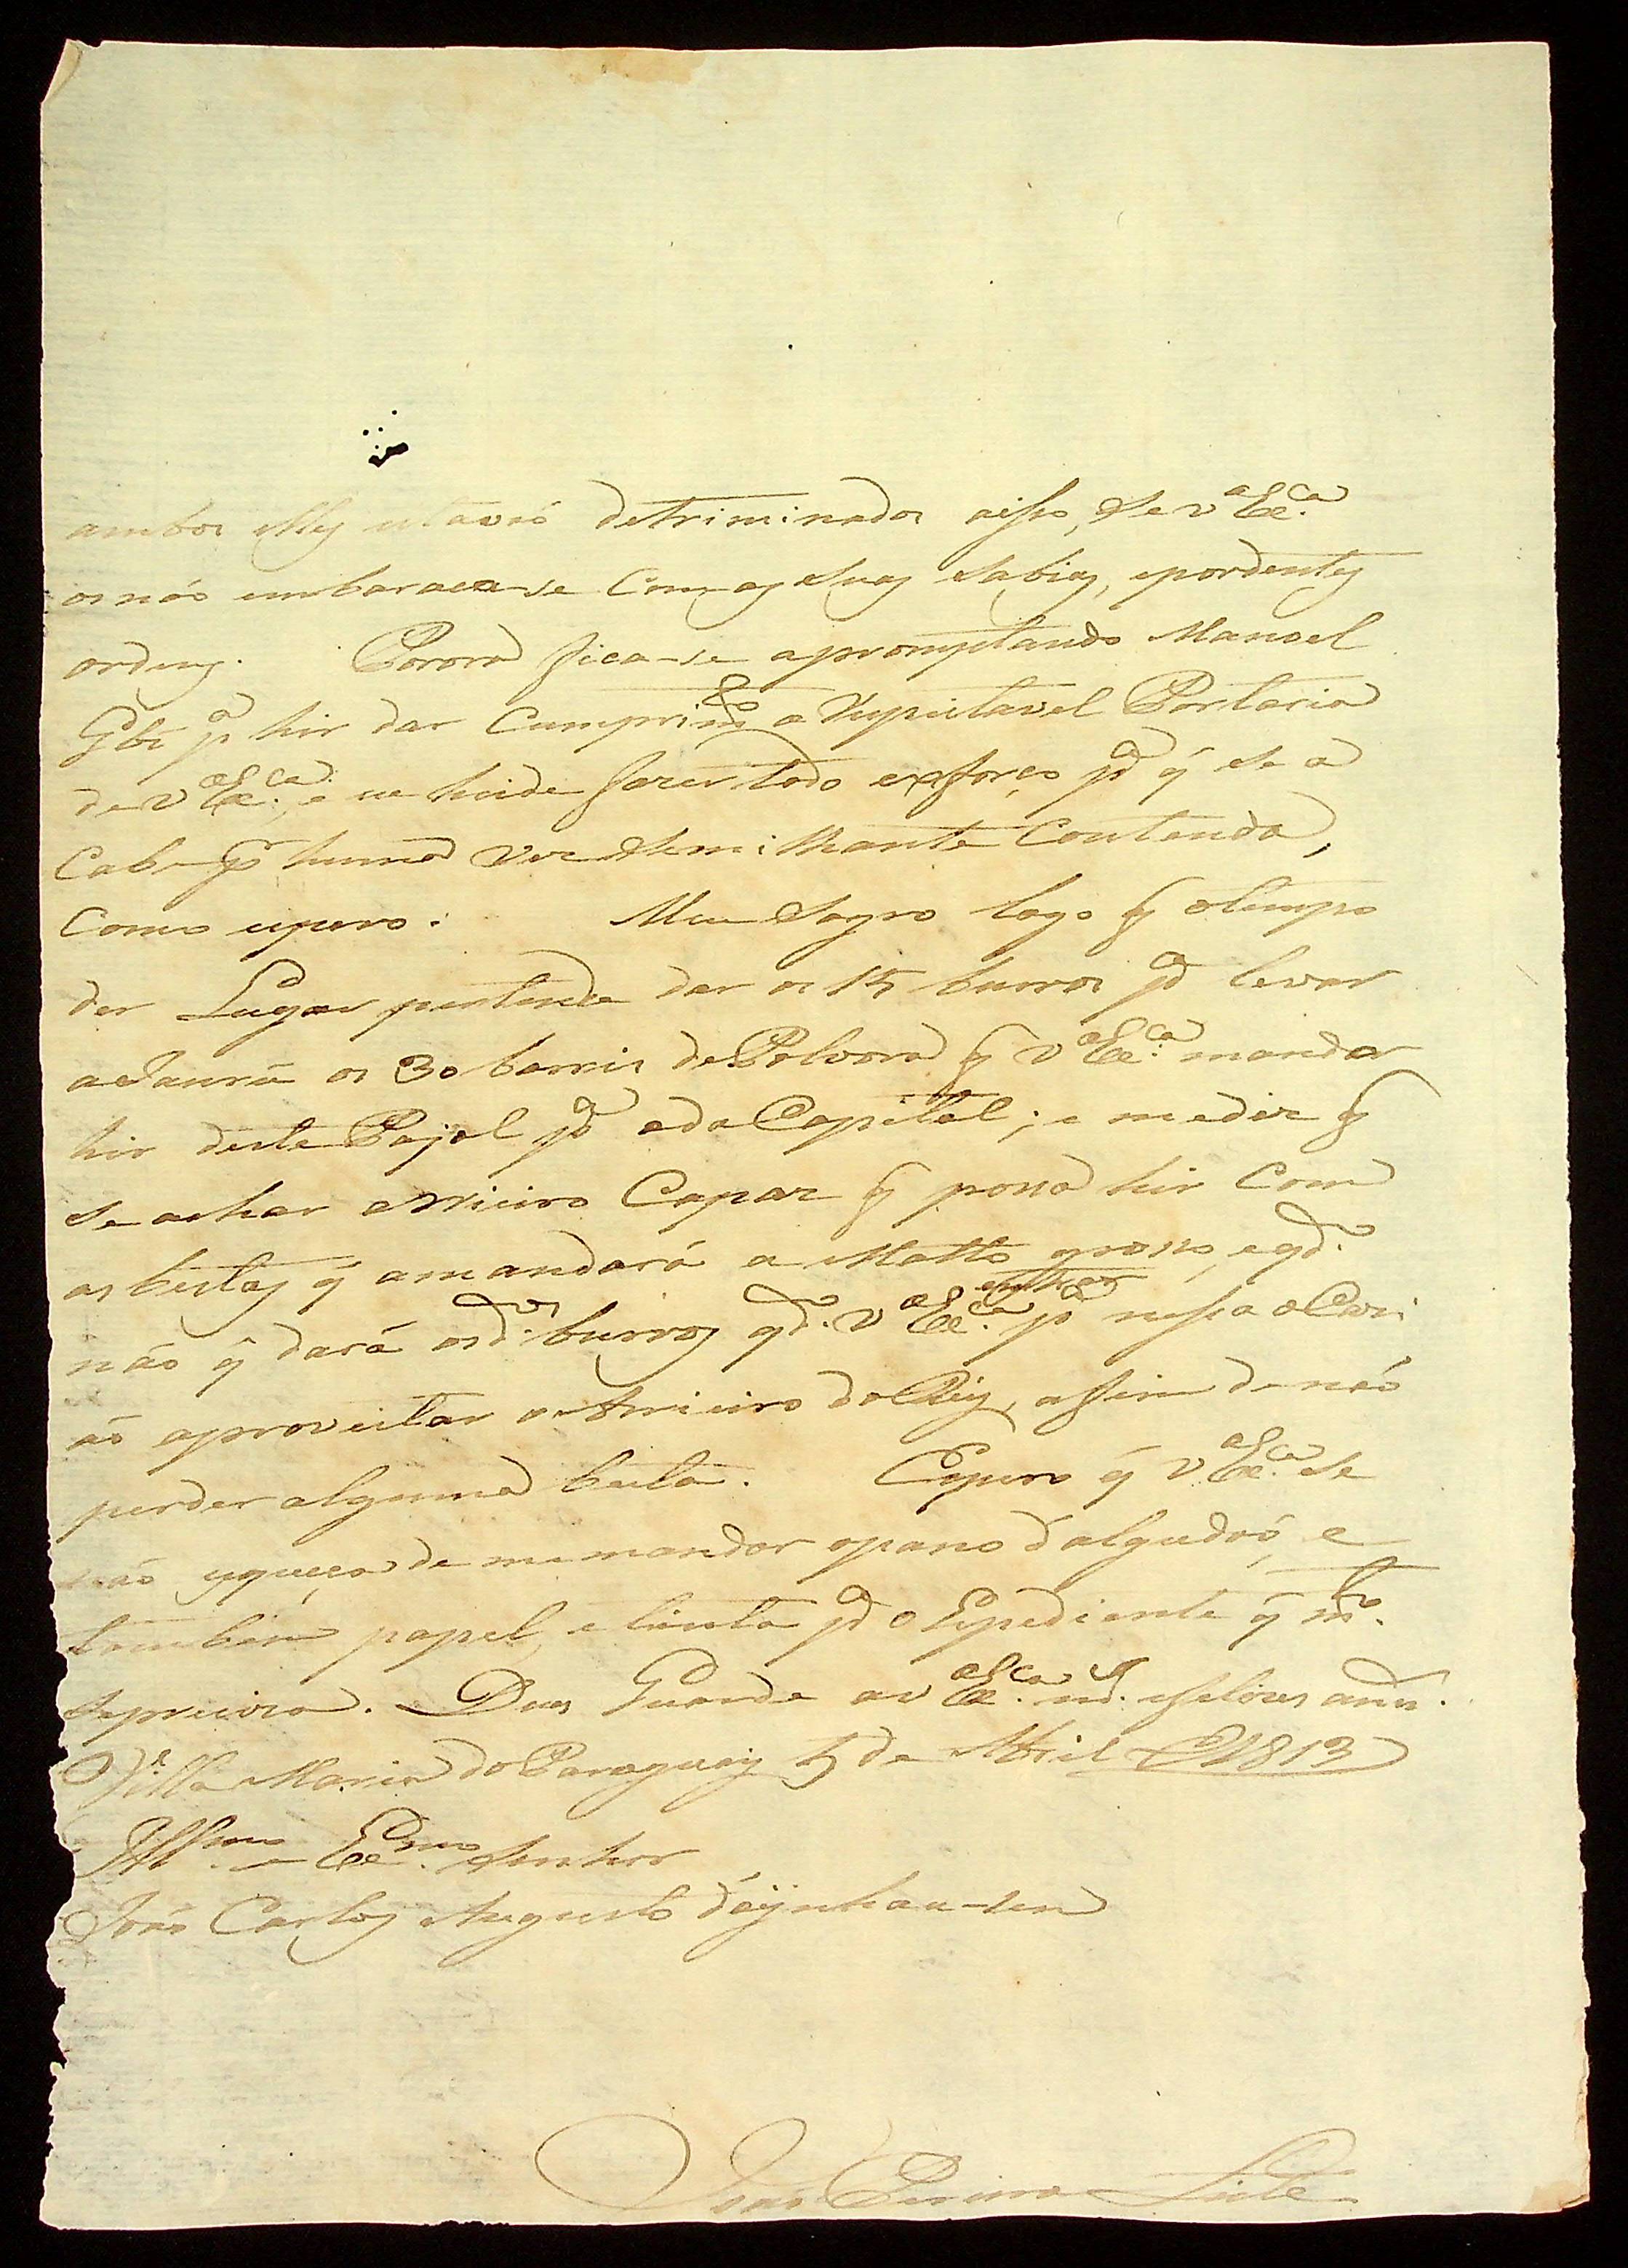 ambos elles estavaó detriminados aisso, Se v Ex.ca
os náo embaraça-se Com as Suas Sabias, eprordentes
ordens. Porora fica-se apromptando Manoel
p.a hir dar Cumprim.to a Respeitavel Portaria
de v Ex.ca, e se hade fazer todo exforço p.a q̃ Se a
Cabe p.r huma vez Semilhante Contenda,
Como espero. Meu Sogro logo q̃ otempo
der Lugar pertende dar os 15 burros p.a levar
a Jaurú os 30 barris de Polvora q̃ v Ex.ca mandar
hir deste Pajol p.a oda Capital; e me diz q̃
Se achar arrieiro Capaz q̃ possa hir Com
as bestas q̃ amandará a Matto grosso, eq.do
náo q̃ dará os d.os burros q.do v Ex.ca entrar p.a nessa ocazi
áo aproveitar o Arrieiro do Rey, afim de náo
perder alguma besta. Espero q̃ v Ex.ca Se
náo esqueça de me mandar opano d'algudaó, e
tambem papel, e tinta p.a o Espediente q̃ m.to
Sepreciza. Deos Guarde a v Ex.ca m.s efelizes an.s
Villa Maria do Paraguay 5 de Abril de 1813
Ill.mo e Ex.mo Senhor
Joáo Carlos Augusto d'Oÿnhau-sen
Joáo Pereira Leite